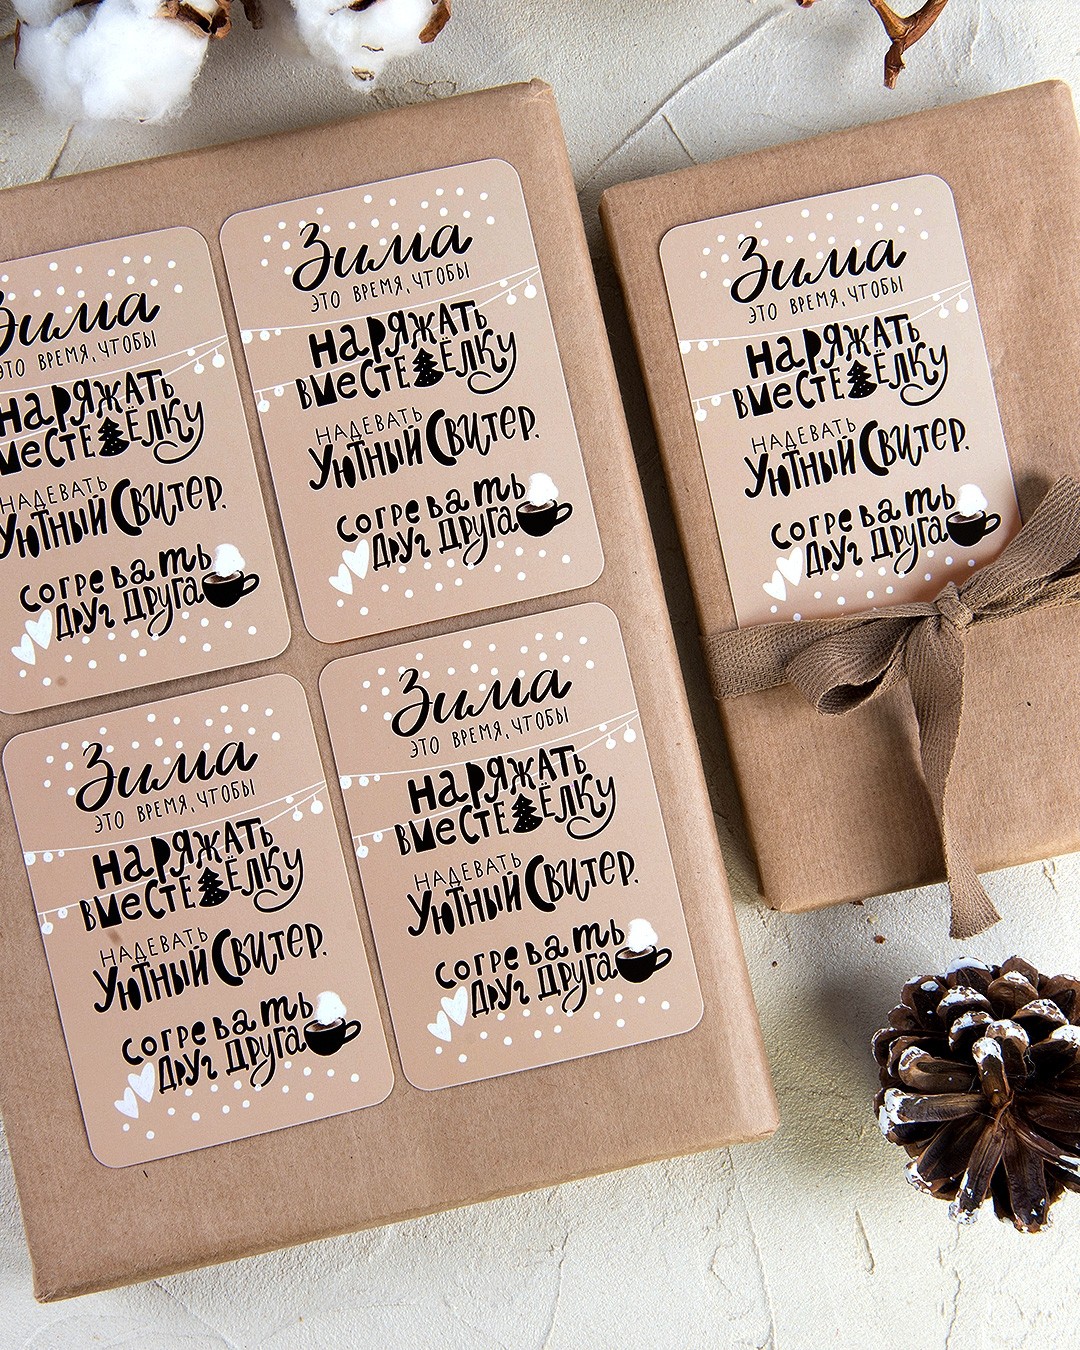 Зима
это время, чтобы
наряжать
вместе ёлку
надевать
уютный свитер.
согревать
друг друга
Зима
это время, чтобы
наряжать
вместе ёлку
надевать
уютный свитер.
согревать
друг друга
Зима
это время, чтобы
наряжать
вместе ёлку
надевать
уютный свитер.
согревать
друг друга
Зима
это время, чтобы
наряжать
вместе ёлку
надевать
уютный свитер.
согревать
друг друга
Зима
это время, чтобы
наряжать
вместе ёлку
надевать
уютный свитер.
согревать
друг друга